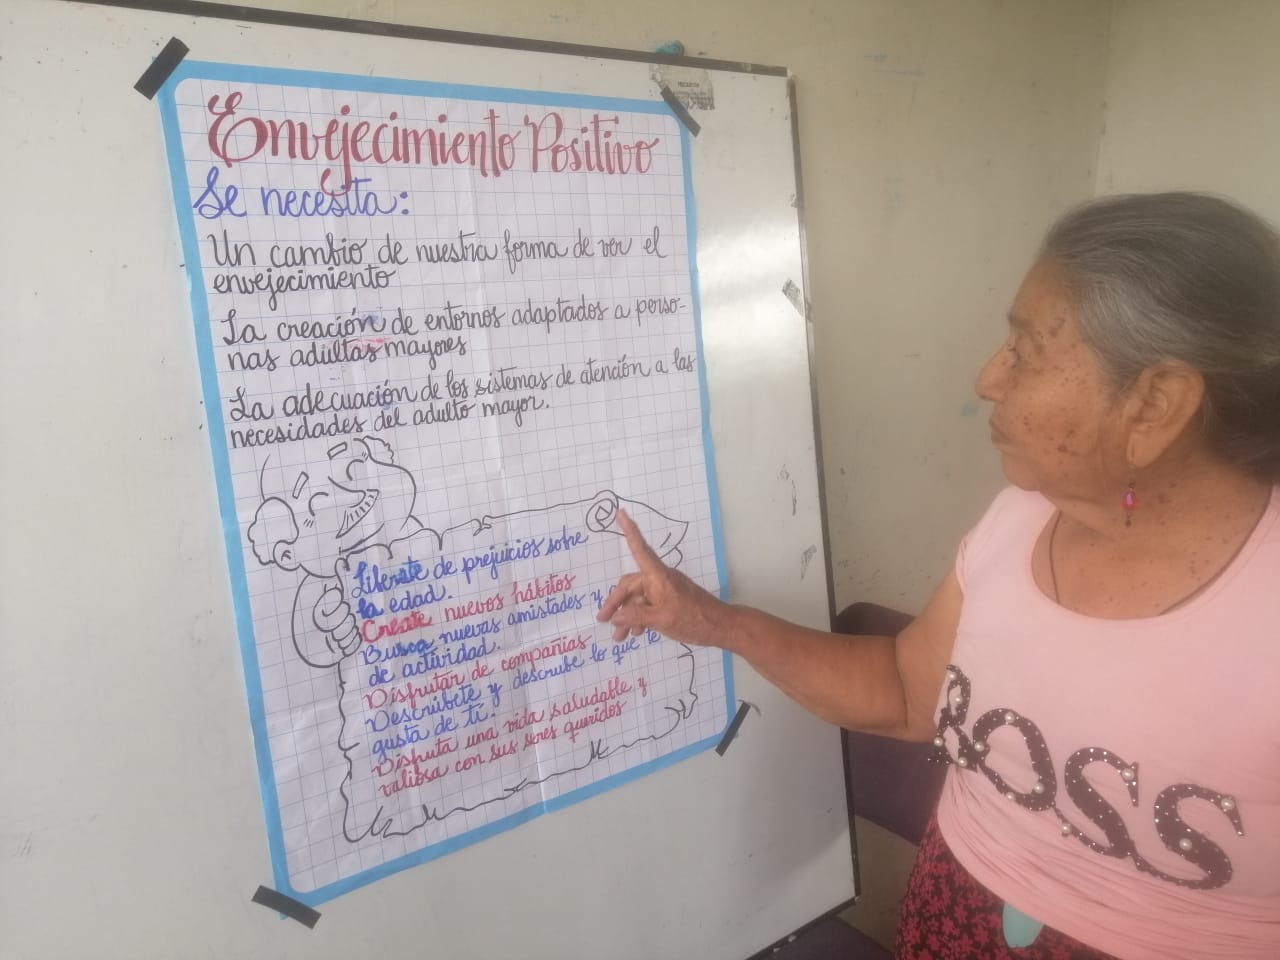 Envejecimiento Positivo
Se necesita:
Un cambio de nuestra forma de ver el
envejecimiento
La creación de entornos adaptados a perso-
nas adultas mayores
La adecuación de los sistemas de atención a las
necesidades del adulto mayor.
Liberate de prejuicios sobre
la edad.
Create nuevos hábitos
Busca nuevas amistades y
de actividad.
Disfrutar de compañias
Descríbete y describe lo que te
gusta de ti.
Disfruta una vida saludable y
valiosa con sus seres queridos
BOSS